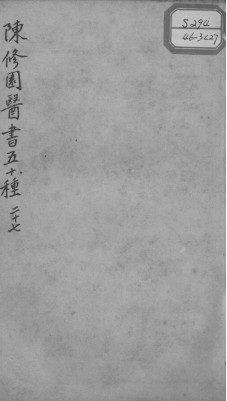 陳修園醫書五十種 二十七
S294
46-3227